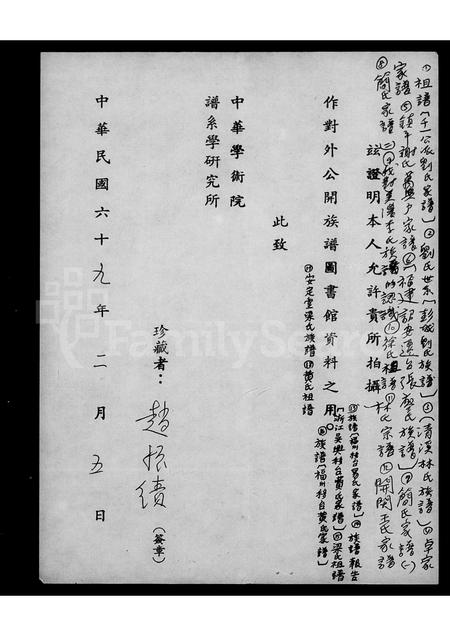 ①祖譜〔千一公派劉氏家譜〕②劉氏世系〔彭城劉氏族譜〕③〔清溪林氏族譜〕④卓家
家譜⑤鎮平謝氏
家譜⑥福建詔安
張廖氏族譜⑦簡氏家譜(一)
⑧簡氏家譜(二)⑨我對
李氏族譜的認識⑩徐氏祖譜⑪林氏宗譜⑫開閩王氏家譜
茲證明本人允許貴所拍攝
作對外公開族譜圖書館資料之用。
⑬族譜〔福州
呂氏家譜〕⑭族譜報告
〔浙江吳興
黃氏家譜〕⑮梁氏祖譜
⑯族譜〔福州
黃氏家譜〕
安定堂梁氏族譜⑱黃氏祖譜
此致
中華學術院
譜系學研究所
珍藏者：趙振績（簽章）
中華民國六十九年二月五日
FamilySearch